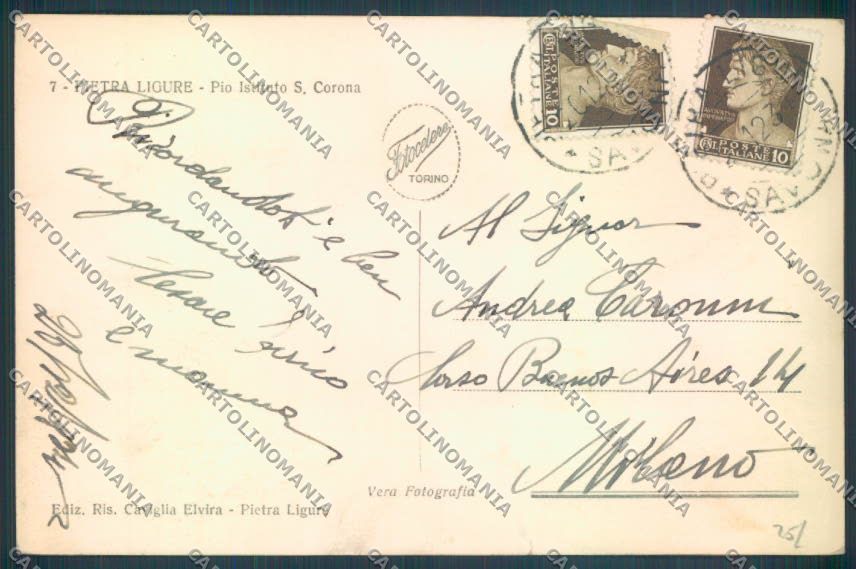 7 - PIETRA LIGURE - Pio Istituto S. Corona
Ricordandoti e ben
augurando
Cesare
e mamma
Fotocelere
TORINO
POSTE
ITALIANE
10
POSTE
ITALIANE 10
SAVONA
Al Signor
Andrea Caronni
Corso Buenos Aires 14
Milano
Vera Fotografia
Ediz. Ris. Caviglia Elvira - Pietra Ligure
25/
CARTOLINOMANIA